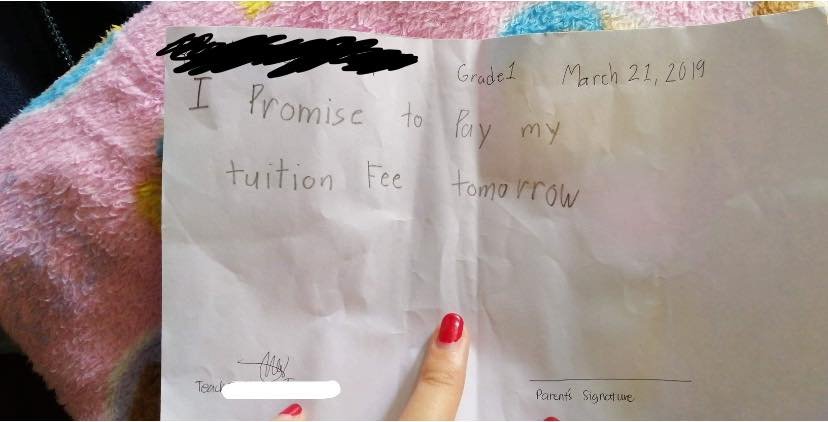 Grade 1 March 21, 2019
I Promise to Pay my
tuition Fee tomorrow
Parent's Signature